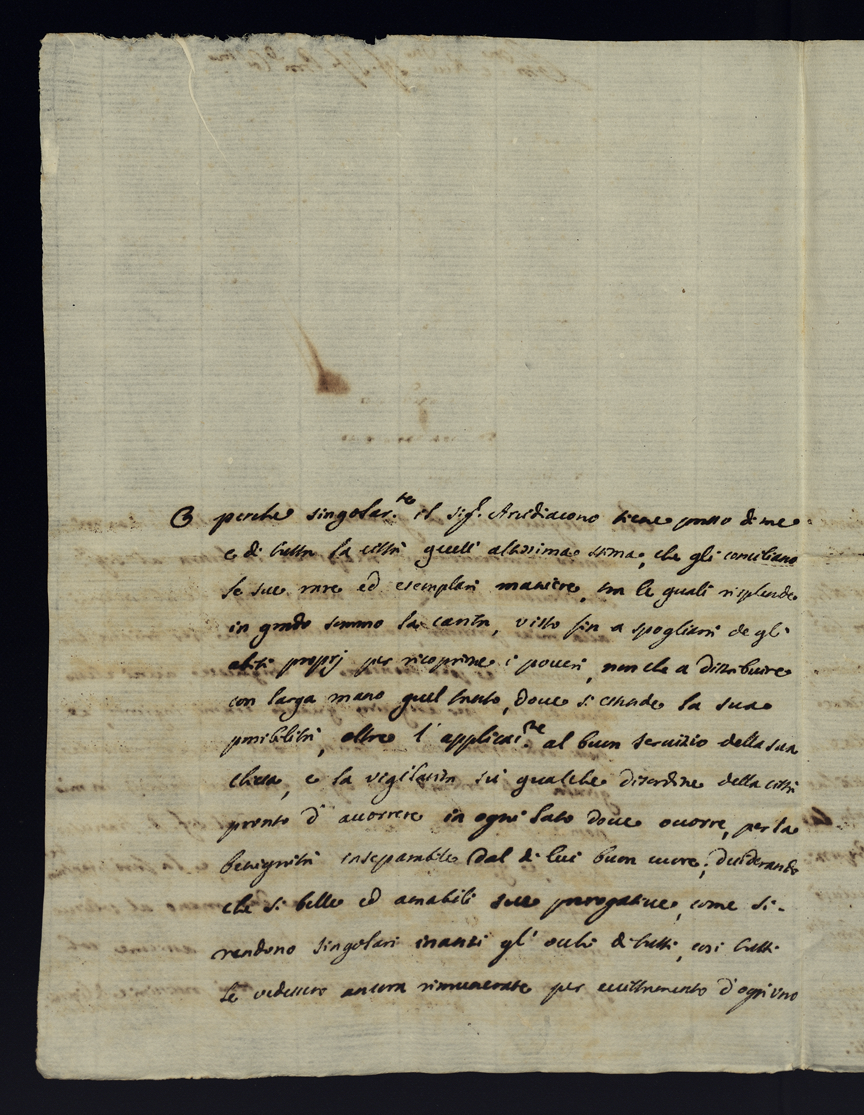 E perche singolar.te il Sig.r Arcidiacono tiene presso di me
e di tutta la città quell' altissima stima, che gli conciliano
le sue rare ed esemplari maniere, tra le quali risplende
in grado sommo la carità, visto fin a spogliarsi de gl'
abiti proprij per ricoprirne i poveri, non che a distribuire
con larga mano quel tutto, dove si estende la sua
possibilità, oltre l' applicaz.ne al buon servizio della sua
chiesa, e la vigilanza sù qualche disordine della città
pronto d' accorrere in ogni lato dove occorre, per la
benignità inseparabile dal di lui buon cuore; desiderando
che si belle ed amabili sue prerogative, come si
rendono singolari inanti gl' occhi di tutti, così tutti
le vedessero ancora rimunerate per eccittamento d'ogni uno